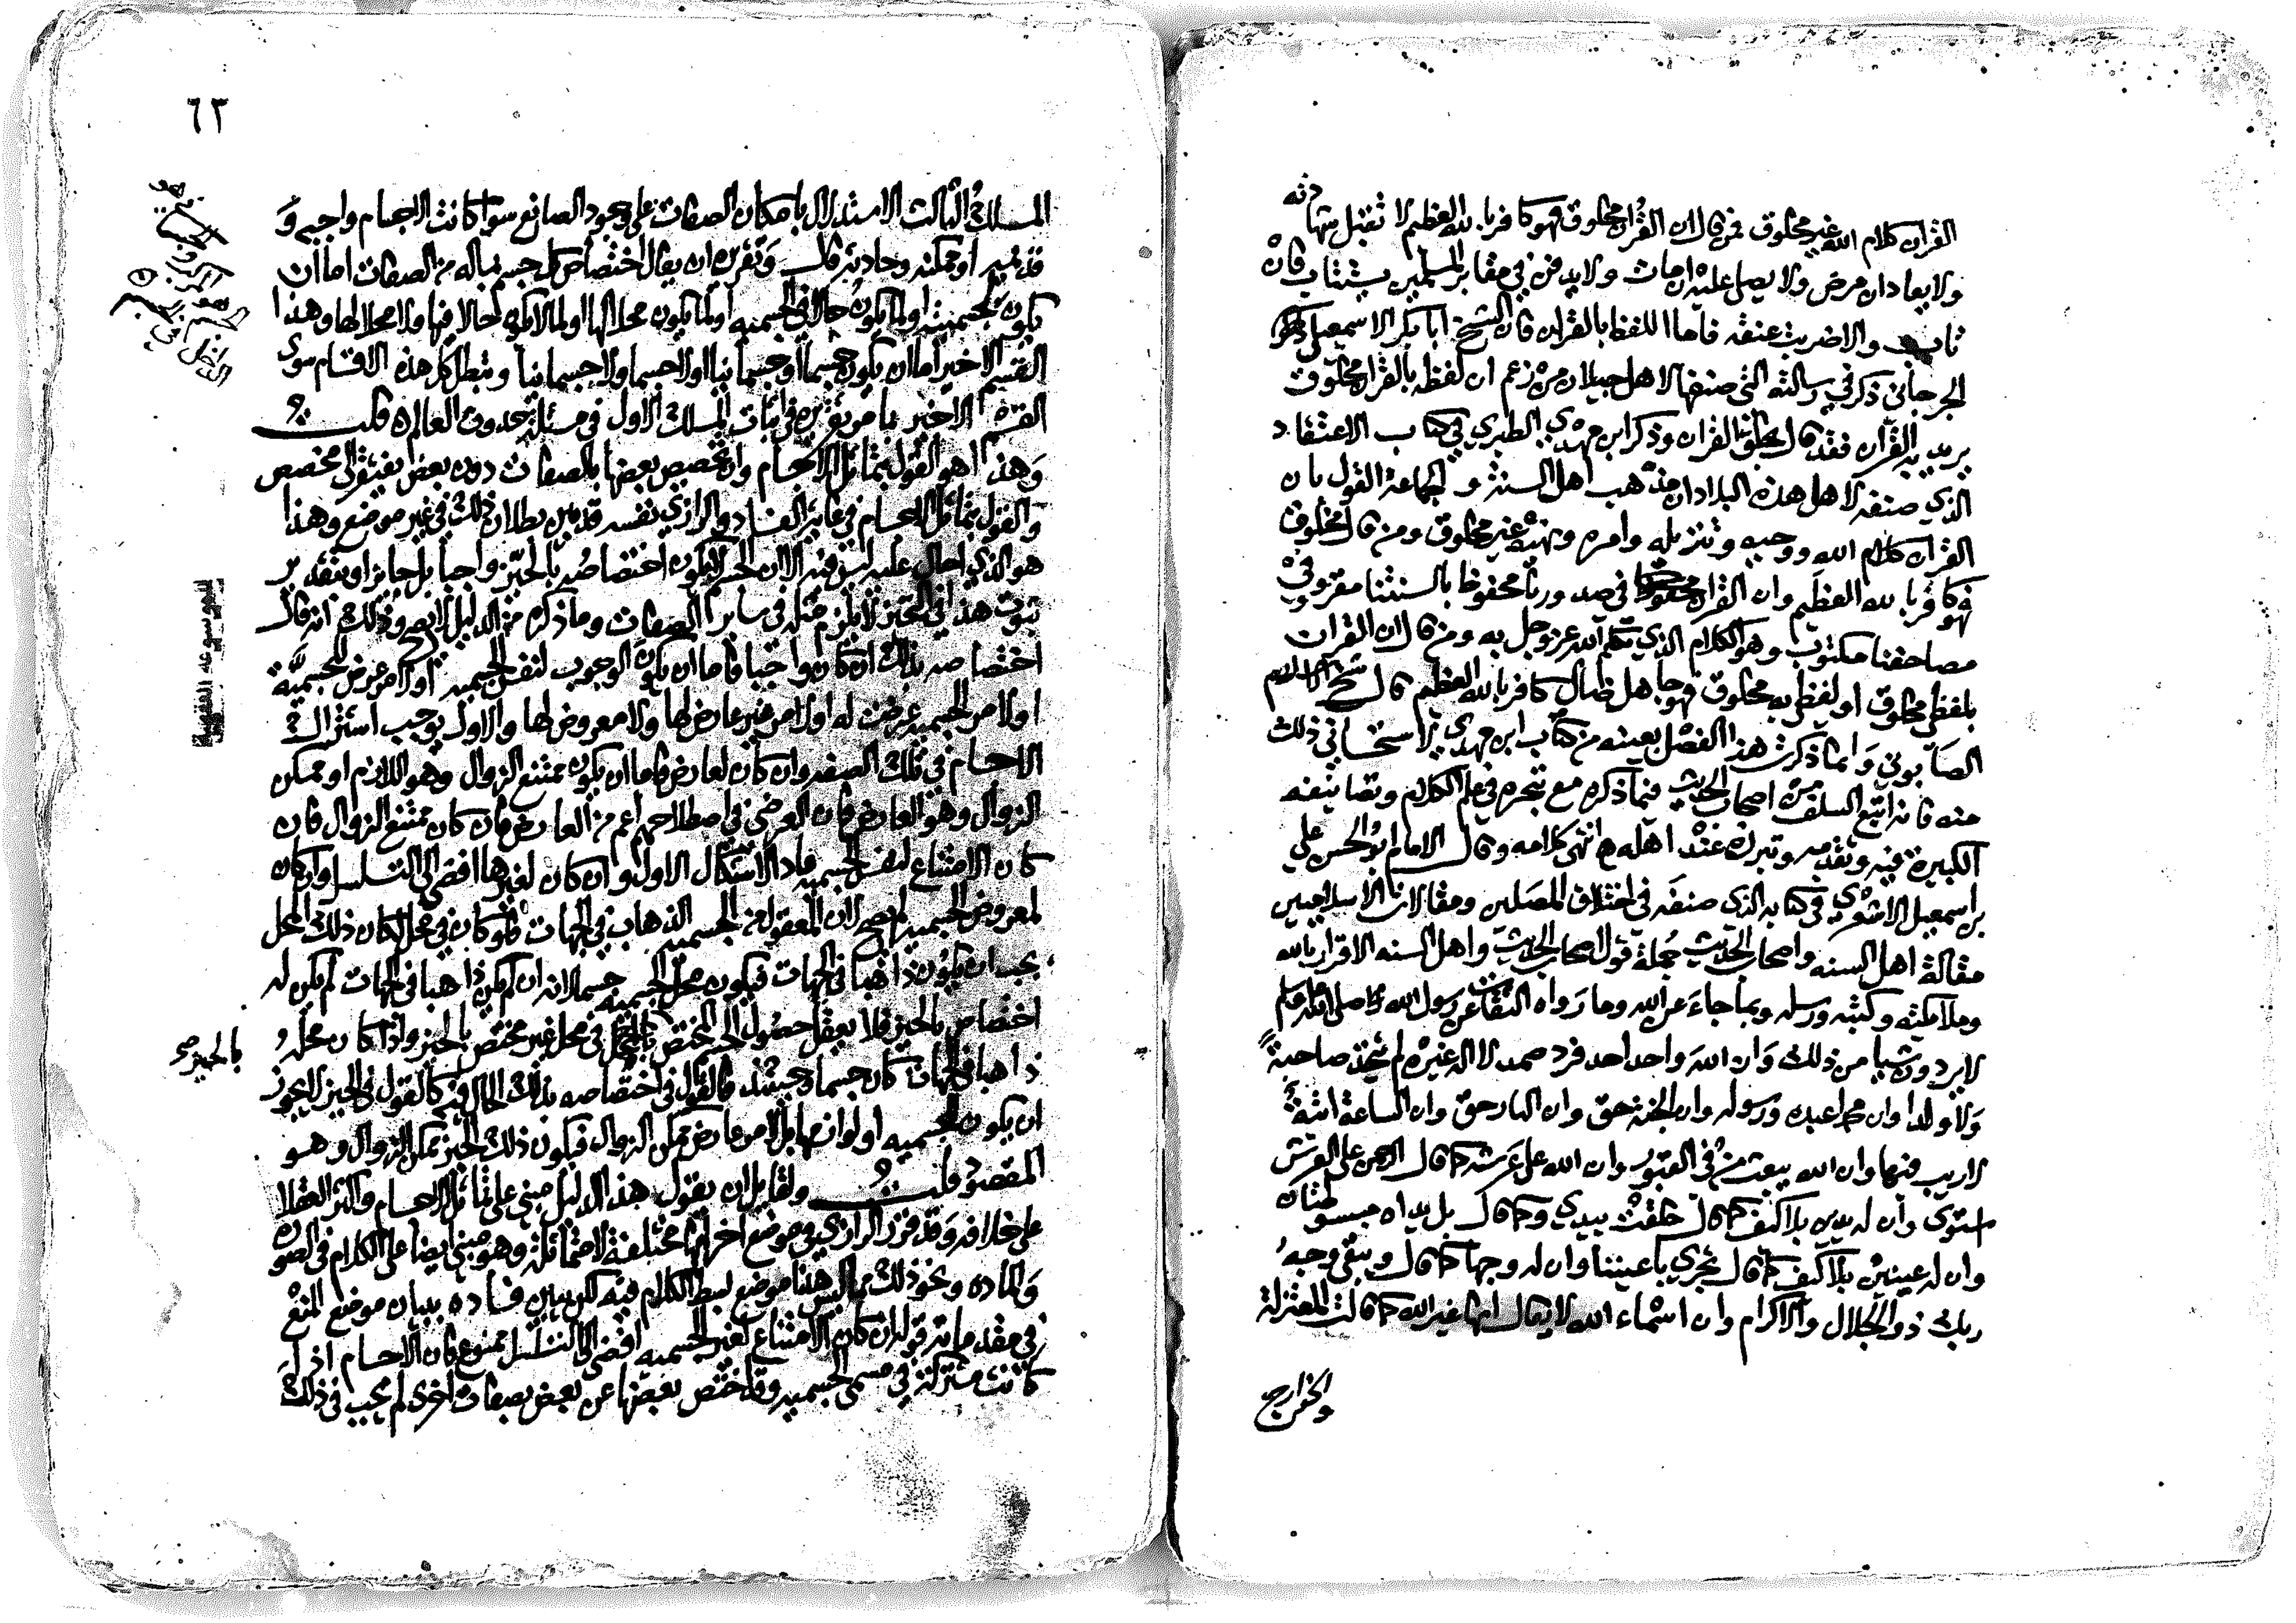 القرآن كلام الله غير مخلوق فمن قال ان القرآن مخلوق فهو كافر بالله العظيم لا تقبل شهادته
ولا يعاد ان مرض ولا يصلى عليه ان مات ولا يدفن في مقابر المسلمين يستتاب فان
تاب والا ضربت عنقه فاما اللفظ بالقرآن فان الشيخ ابا بكر الاسمعيلي
الجرجاني ذكر في رسالته التي صنفها لاهل جيلان من زعم ان لفظه بالقرآن مخلوق
يريد به القرآن فقد قال بخلق القرآن وذكر ابن مهدي الطبري في كتاب الاعتقاد
الذي صنفه لاهل هذه البلاد ان مذهب اهل السنة والجماعة القول بان
القرآن كلام الله ووحيه وتنزيله وامره ونهيه غير مخلوق ومن قال مخلوق
فهو كافر بالله العظيم وان القرآن في صدورنا محفوظ بالسنتنا مقروء في
مصاحفنا مكتوب وهو الكلام الذي تكلم الله عز وجل به ومن قال ان القرآن
بلفظي مخلوق او لفظي به مخلوق فهو جاهل ضال كافر بالله العظيم قال شيخ الاسلام
الصابوني وانما ذكرت هذا الفصل بعينه من كتاب ابن مهدي لاستحساني ذلك
منه فانه اتبع السلف من اصحاب الحديث فيما ذكره مع تبحره في علم الكلام وتصانيفه
الكبيرة فيه وتقدمه وتبرزه عند اهله انتهى كلامه وقال الامام ابو الحسن علي
بن اسمعيل الاشعري في كتابه الذي صنفه في اختلاف المصلين ومقالات الاسلاميين
مقالة اهل السنه واصحاب الحديث جملة قول اصحاب الحديث واهل السنه الاقرار بالله
وملائكته وكتبه ورسله وبما جاء عن الله وما رواه الثقات عن رسول الله صلى الله عليه وسلم
لا يردون شيا من ذلك وان الله واحد احد فرد صمد لا اله غيره لم يتخذ صاحبة
ولا ولدا وان محمدا عبده ورسوله وان الجنة حق وان النار حق وان الساعة اتية
لا ريب فيها وان الله يبعث من في القبور وان الله على عرشه كما قال الرحمن على العرش
استوى وان له يدين بلا كيف كما قال خلقت بيدي وكما قال بل يداه مبسوطتان
وان له عينين بلا كيف كما قال تجري باعيننا وان له وجها كما قال ويبقى وجه
ربك ذو الجلال والاكرام وان اسماء الله لا يقال انها غير الله كما قالت المعتزلة
والخوارج
٦٢
المسلك الثالث الاستدلال بامكان الصفات على وجود الصانع سوا كانت الاجسام واجبه و
قديمه او ممكنه وحادثه قال وتقريره ان يقال اختصاص كل جسم بماله من الصفات اما ان
يكون لجسميته او لما يكون حالا في الجسميه او لما يكون محلا لها او لما لا يكون حالا فيها ولا محلا لها وهذا
القسم الاخير اما ان يكون جسما او جسمانيا او لا جسما ولا جسمانيا وتبطل كل هذه الاقسام سوى
القسم الاخير بما مر تقريره في اثبات المسلك الاول في مسئلة حدوث العالم قلت
وهذا هو القول بتماثل الاجسام وان تخصيص بعضها بالصفات دون بعض يفتقر الى مخصص
والقول بتماثل الاجسام في غاية الفساد والرازي نفسه قد بين بطلان ذلك في غير موضع وهذا
هو الذي احال عليه ليس فيه الا ان الجسم لا يكون اختصاصه بالحيز واجبا بل جايزا وبتقدير
ثبوت هذا في التحيز لا يلزم مثله في ساير الصفات وما ذكره من الدليل لا يصح وذلك انه قال
اختصاصه بذلك ان كان واجبا فاما ان يكون الوجوب لنفس الجسميه او لامر عرض للجسمية
او لامر الجسميه عرضت له او لامر غير عارض لها ولا معروض لها والاول يوجب اشتراك
الاجسام في تلك الصفه وان كان لعارض فاما ان يكون ممتنع الزوال وهو اللازم او ممكن
الزوال وهو العارض فان العرضي في اصطلاحهم اعم من العارض فان كان ممتنع الزوال فان
كان الامتناع لنفس الجسميه عاد الاشكال الاول وان كان لغيرها افضى الى التسلسل وان كان
لمعروض الجسميه لم يصح لان المعقول من الجسميه الذهاب في الجهات فلو كان في محل لكان ذلك المحل
يجب ان يكون ذاهبا في الجهات فيكون محل الجسميه جسما لانه ان لم يكن ذاهبا في الجهات لم يكن له
اختصاص بالحيز فلا يعقل حصول الجسم المختص في محل غير مختص بالحيز واذا كان محله
بالحيز صح
ذاهبا في الجهات كان جسما وحينئذ فالقول في اختصاصه بذلك المحال فيه كالقول في الحيز لا يجوز
ان يكون لجسميه او لوازمها بل لامر عارض ممكن الزوال فيكون ذلك الحيز ممكن الزوال وهو
المقصود قلت ولقايل ان يقول هذا الدليل مبني على تماثل الاجسام واكثر العقلا
على خلافه وقد قرر الرازي في موضع اخر انها مختلفة لا متماثلة وهو مبني ايضا على الكلام في الصورة
والمادة ونحو ذلك مما ليس هنا موضع لبسط الكلام فيه لكن نبين فساده ببيان موضع المنع
في مقدماته قوله ان كان الامتناع لغير الجسميه افضى الى التسلسل ممنوع فان الاجسام اذا
كانت مشتركة في مسمى الجسميه وقد اختص بعضها عن بعض بصفات اخرى لم يجب في ذلك